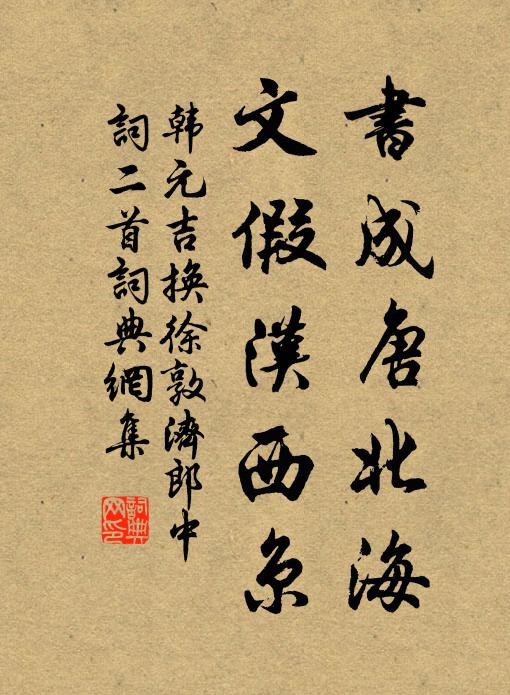 書成唐北海
文假漢西京
韩元吉换徐敦濟郎中
詞二首詞典網集
詞典网印